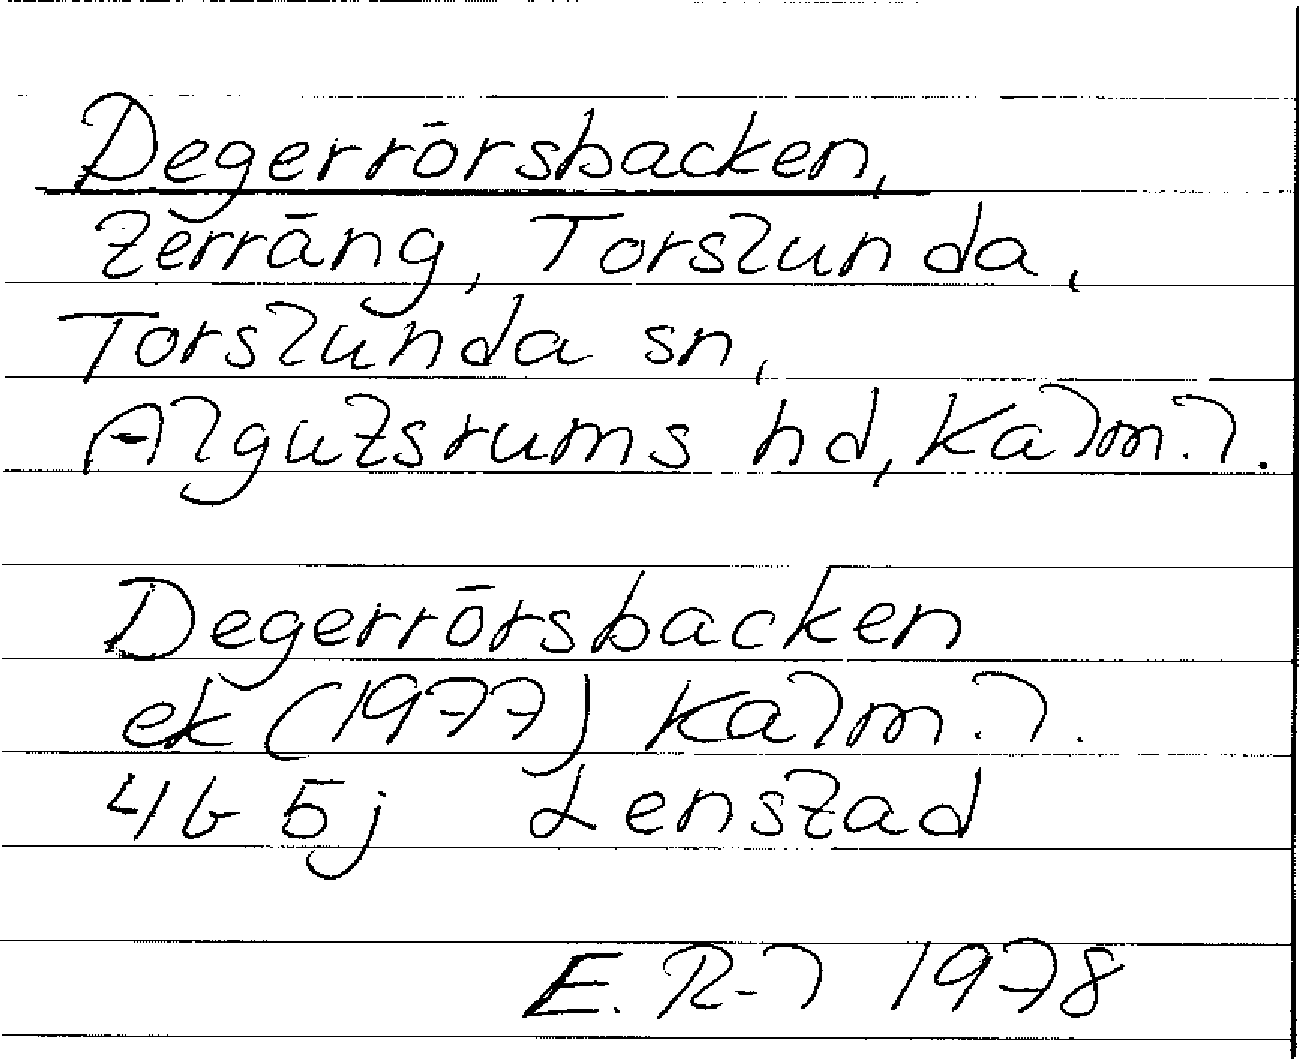 Degerrörsbacken,
terräng, Torslunda,
Torslunda sn,
Algutsrums hd, Kalm. l.
Degerrörsbacken
ek (1977) Kalm. l.
4G 5j Lenstad
E. R-l 1978